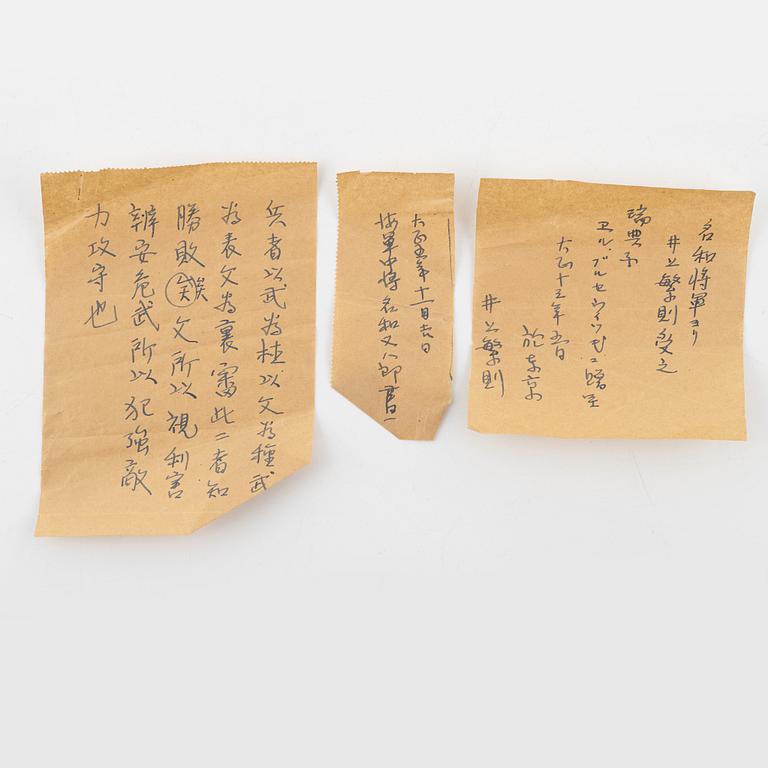 兵者以武為植以文為種武
為表文為裏審此二者知
勝敗矣文所以視利害
辨安危武所以犯強敵
力攻守也
大正五年十一月吉日
海軍中将名和又八郎書
名和将軍ヨリ
井上繁則受之
瑞典
ヱル、ブルセウィッツ氏ニ贈呈
大正十三年五月
於東京
井上繁則